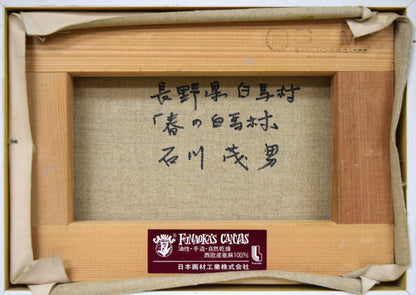 長野県白馬村
「春の白馬村」
石川茂男
CANVAS
FUNAOKA'S CANVAS
油性・手造・自然乾燥
西欧産亜麻100%
日本画材工業株式会社